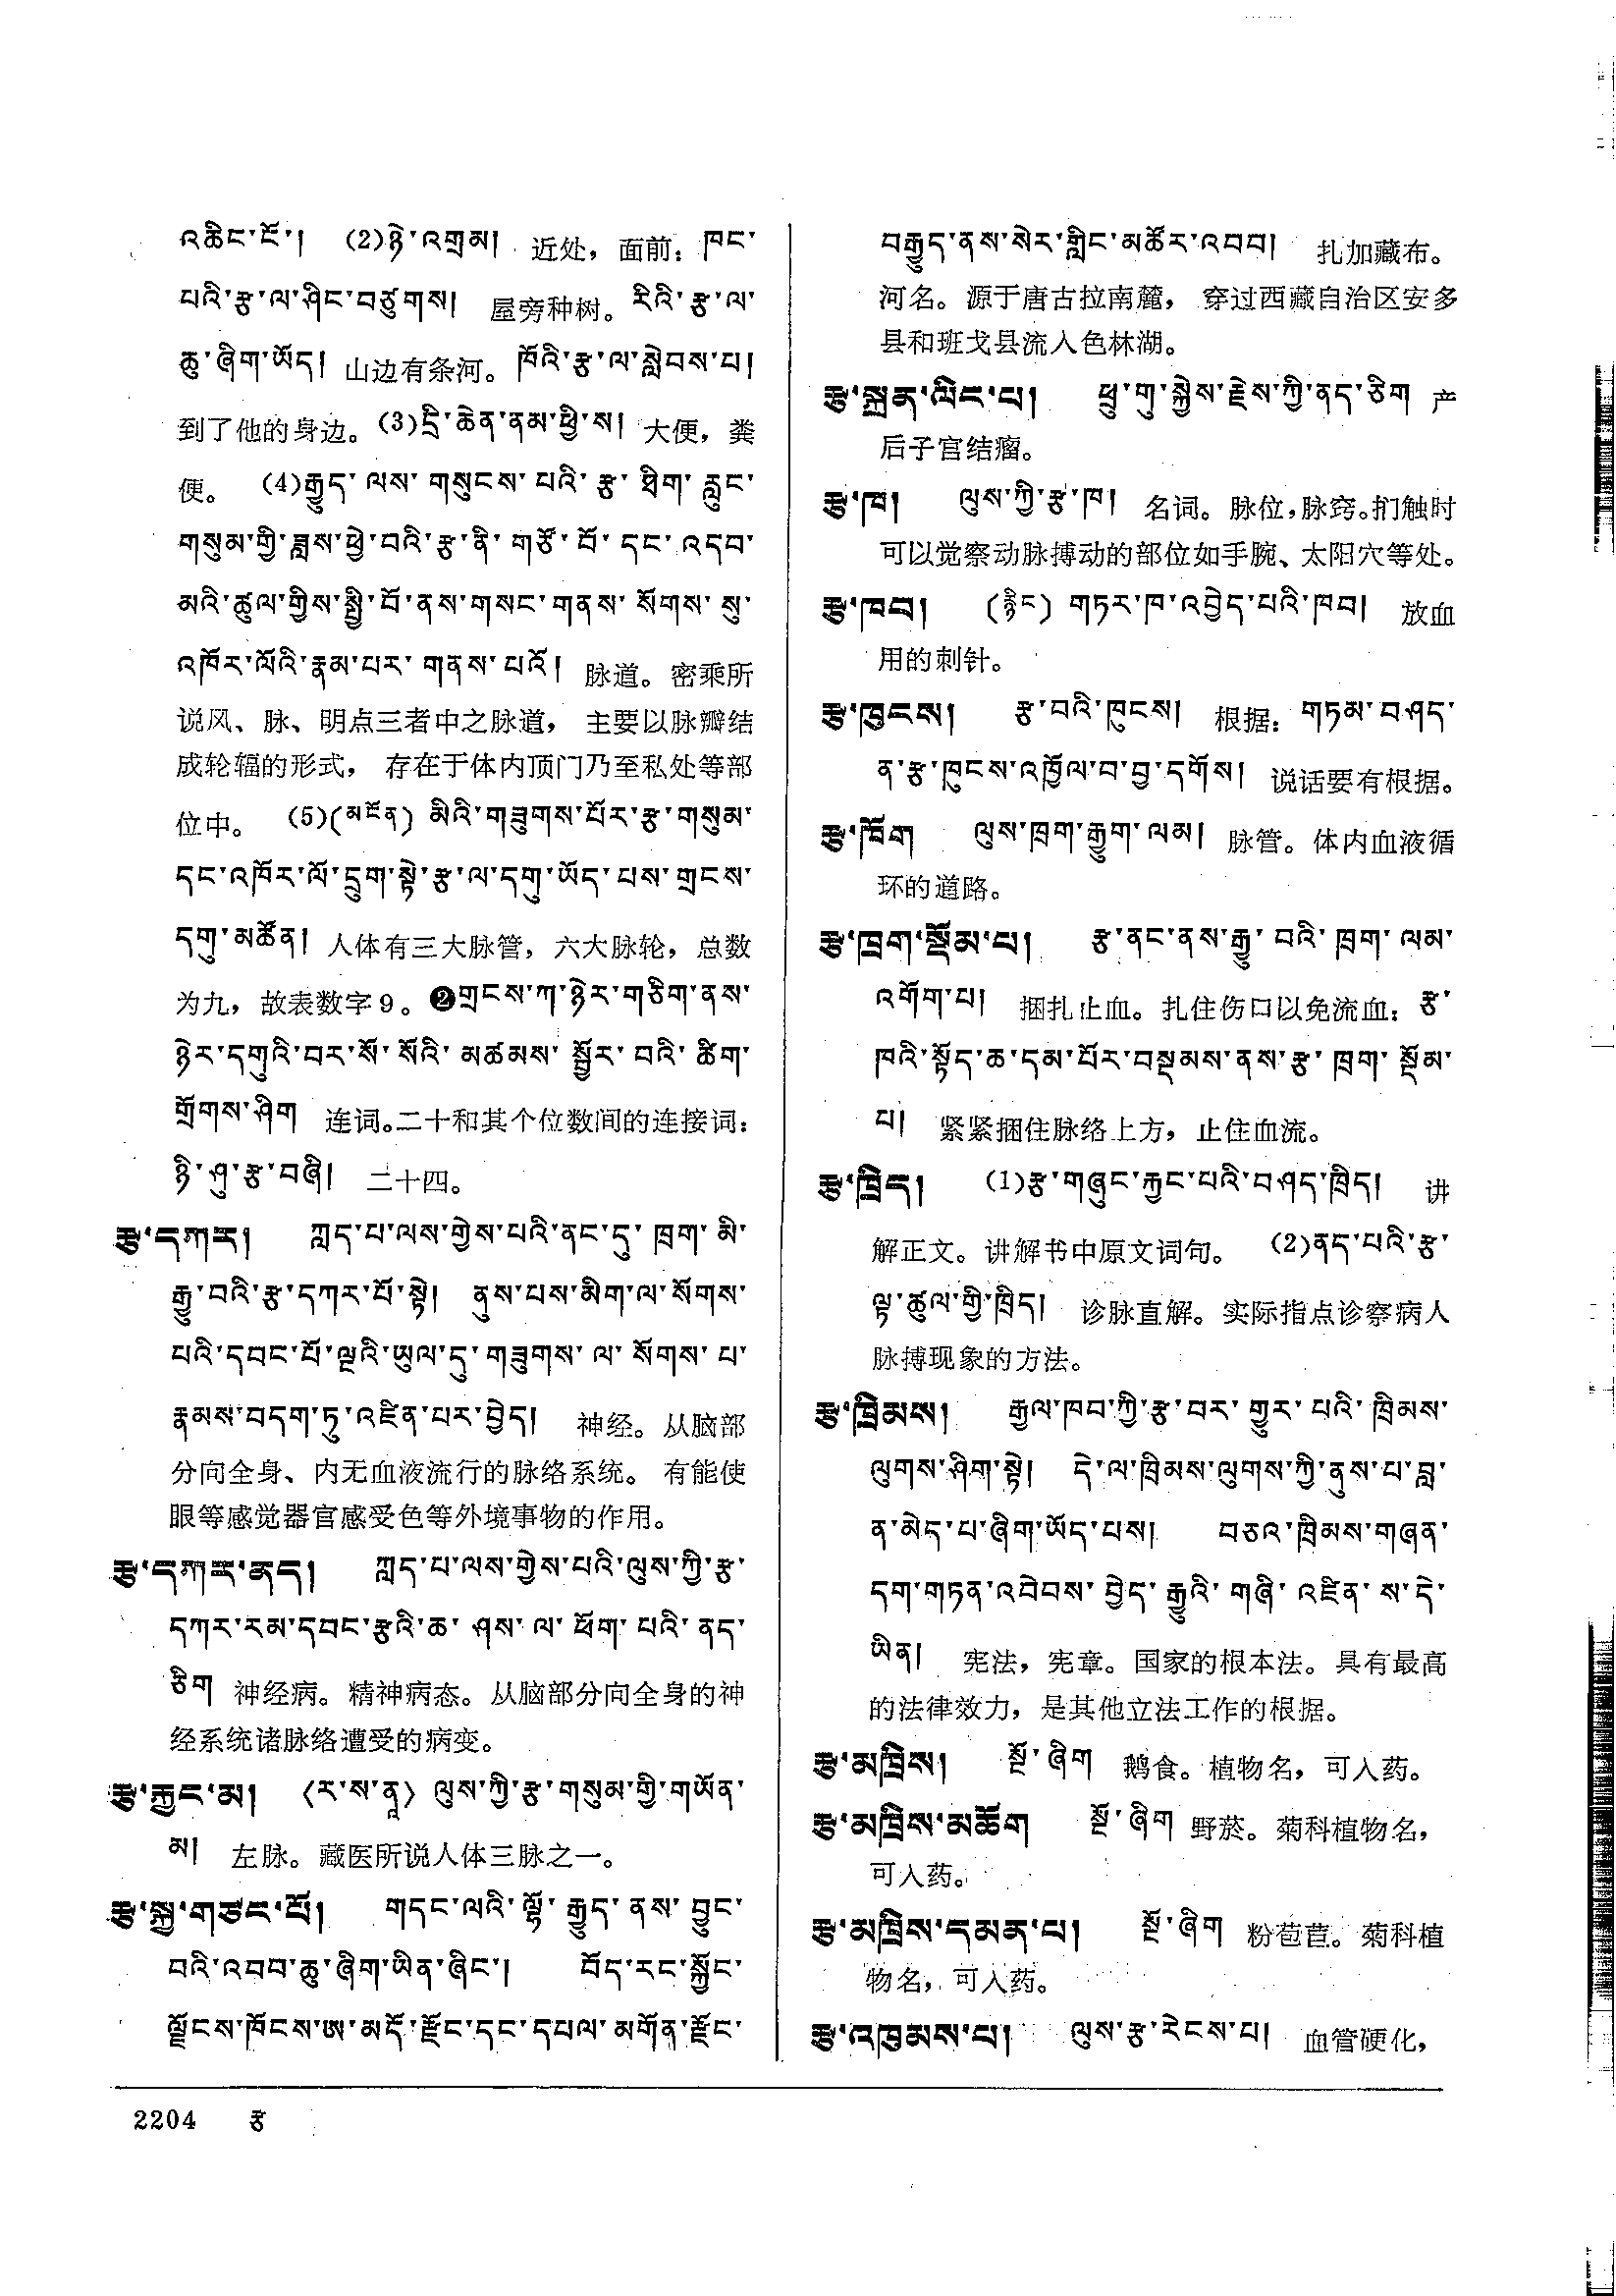 འཆིང་ངོ་། (2)ཉེ་འགྲམ། 近处，面前：ཁང་
པའི་རྩ་ལ་ཤིང་བཙུགས། 屋旁种树。རིའི་རྩ་ལ་
ཆུ་ཞིག་ཡོད། 山边有条河。ཁོའི་རྩ་ལ་སླེབས་པ།
到了他的身边。(3)དྲི་ཆེན་ནམ་ཕྱི་ས། 大便，粪
便。 (4)རྒྱུད་ལས་གསུངས་པའི་རྩ་ཐིག་རླུང་
གསུམ་གྱི་ཟླས་ཕྱེ་བའི་རྩ་ནི་གཙོ་བོ་དང་འདབ་
མའི་ཚུལ་གྱིས་སྤྱི་བོ་ནས་གསང་གནས་སོགས་སུ་
འཁོར་ལོའི་རྣམ་པར་གནས་པའོ། 脉道。密乘所
说风、脉、明点三者中之脉道， 主要以脉瓣结
成轮辐的形式， 存在于体内顶门乃至私处等部
位中。 (5)(མངོན) མིའི་གཟུགས་པོར་རྩ་གསུམ་
དང་འཁོར་ལོ་དྲུག་སྟེ་རྩ་ལ་དགུ་ཡོད་པས་གྲངས་
དགུ་མཚོན། 人体有三大脉管，六大脉轮，总数
为九，故表数字9。❷གྲངས་ཀ་ཉེར་གཅིག་ནས་
ཉེར་དགུའི་བར་སོ་སོའི་མཚམས་སྦྱོར་བའི་ཚིག་
གྲོགས་ཤིག 连词。二十和其个位数间的连接词：
ཉི་ཤུ་རྩ་བཞི། 二十四。
རྩ་དཀར། ཀླད་པ་ལས་གྱེས་པའི་ནང་དུ་ཁྲག་མི་
རྒྱུ་བའི་རྩ་དཀར་པོ་སྟེ། ནུས་པས་མིག་ལ་སོགས་
པའི་དབང་པོ་ལྔའི་ཡུལ་དུ་གཟུགས་ལ་སོགས་པ་
རྣམས་བདག་ཏུ་འཛིན་པར་བྱེད། 神经。从脑部
分向全身、内无血液流行的脉络系统。 有能使
眼等感觉器官感受色等外境事物的作用。
རྩ་དཀར་ནད། ཀླད་པ་ལས་གྱེས་པའི་ལུས་ཀྱི་རྩ་
དཀར་རམ་དབང་རྩའི་ཆ་ཤས་ལ་ཕོག་པའི་ནད་
ཅིག 神经病。精神病态。从脑部分向全身的神
经系统诸脉络遭受的病变。
རྩ་རྐྱང་མ། 〈ར་ས་ནཱ〉 ལུས་ཀྱི་རྩ་གསུམ་གྱི་གཡོན་
མ། 左脉。藏医所说人体三脉之一。
རྩ་སྐྱ་གཙང་པོ། གདང་ལའི་ལྷོ་རྒྱུད་ནས་བྱུང་
བའི་འབབ་ཆུ་ཞིག་ཡིན་ཞིང་། བོད་རང་སྐྱོང་
ལྗོངས་ཁོངས་ཨ་མདོ་རྫོང་དང་དཔལ་མགོན་རྫོང་
བརྒྱུད་ནས་སེར་གླིང་མཚོར་འབབ། 扎加藏布。
河名。源于唐古拉南麓， 穿过西藏自治区安多
县和班戈县流入色林湖。
རྩ་སྐྲན་ལིང་པ། ཕྲུ་གུ་སྐྱེས་རྗེས་ཀྱི་ནད་ཅིག 产
后子宫结瘤。
རྩ་ཁ། ལུས་ཀྱི་རྩ་ཁ། 名词。脉位，脉窍。扪触时
可以觉察动脉搏动的部位如手腕、太阳穴等处。
རྩ་ཁབ། (རྙིང) གཏར་ཁ་འབྱེད་པའི་ཁབ། 放血
用的刺针。
རྩ་ཁུངས། རྩ་བའི་ཁུངས། 根据：གཏམ་བཤད་
ན་རྩ་ཁུངས་འཁྱོལ་བ་བྱ་དགོས། 说话要有根据。
རྩ་ཁོག ལུས་ཁྲག་རྒྱུག་ལམ། 脉管。体内血液循
环的道路。
རྩ་ཁྲག་སྡོམ་པ། རྩ་ནང་ནས་རྒྱུ་བའི་ཁྲག་ལམ་
འགོག་པ། 捆扎止血。扎住伤口以免流血：རྩ་
ཁའི་སྟོད་ཆ་དམ་པོར་བསྡམས་ནས་རྩ་ཁྲག་སྡོམ་
པ། 紧紧捆住脉络上方，止住血流。
རྩ་ཁྲིད། (1)རྩ་གཞུང་རྐྱང་པའི་བཤད་ཁྲིད། 讲
解正文。讲解书中原文词句。 (2)ནད་པའི་རྩ་
ལྟ་ཚུལ་གྱི་ཁྲིད། 诊脉直解。实际指点诊察病人
脉搏现象的方法。
རྩ་ཁྲིམས། རྒྱལ་ཁབ་ཀྱི་རྩ་བར་གྱུར་པའི་ཁྲིམས་
ལུགས་ཤིག་སྟེ། དེ་ལ་ཁྲིམས་ལུགས་ཀྱི་ནུས་པ་བླ་
ན་མེད་པ་ཞིག་ཡོད་པས། བཅའ་ཁྲིམས་གཞན་
དག་གཏན་འབེབས་བྱེད་རྒྱུའི་གཞི་འཛིན་ས་དེ་
ཡིན། 宪法，宪章。国家的根本法。具有最高
的法律效力，是其他立法工作的根据。
རྩ་མཁྲིས། སྔོ་ཞིག 鹅食。植物名，可入药。
རྩ་མཁྲིས་མཆོག སྔོ་ཞིག 野菸。菊科植物名，
可入药。
རྩ་མཁྲིས་དམན་པ། སྔོ་ཞིག 粉苞苣。菊科植
物名，可入药。
རྩ་འཁུམས་པ། ལུས་རྩ་རེངས་པ། 血管硬化，
2204 རྩ